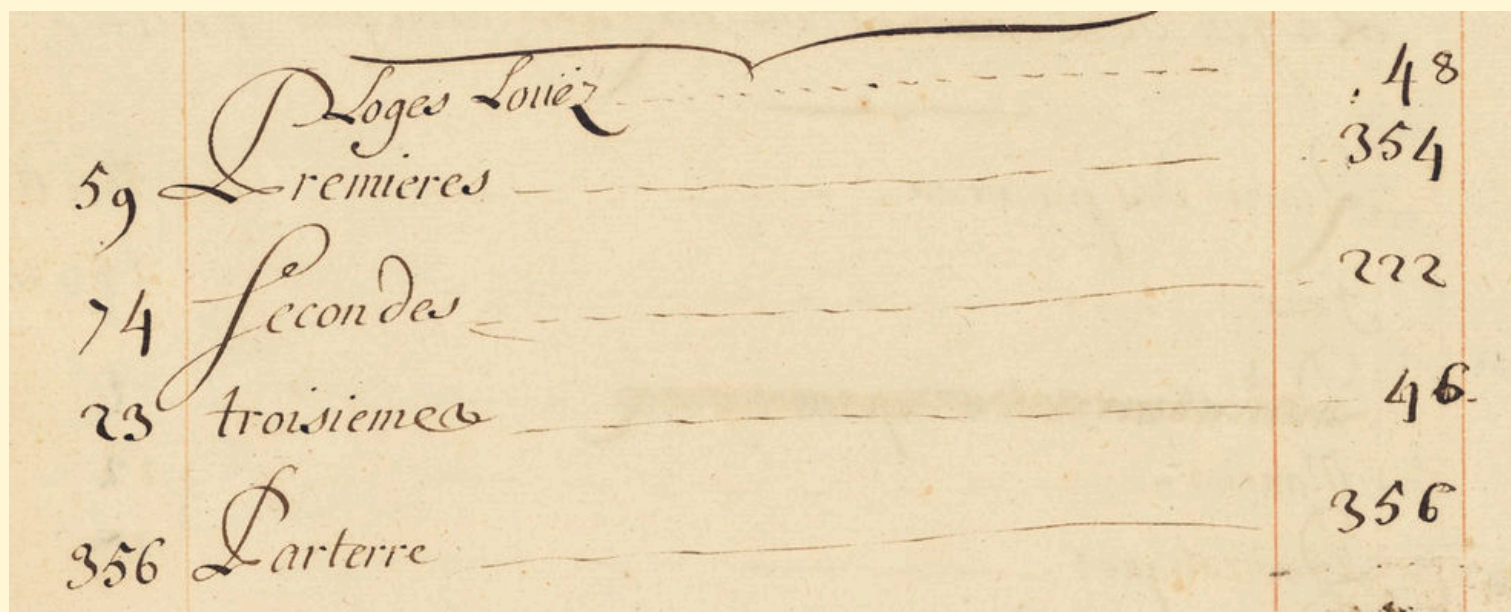 Loges Loüéz 48
59 Premieres 354
74 Secondes 222
23 troisiemes 46
356 Parterre 356